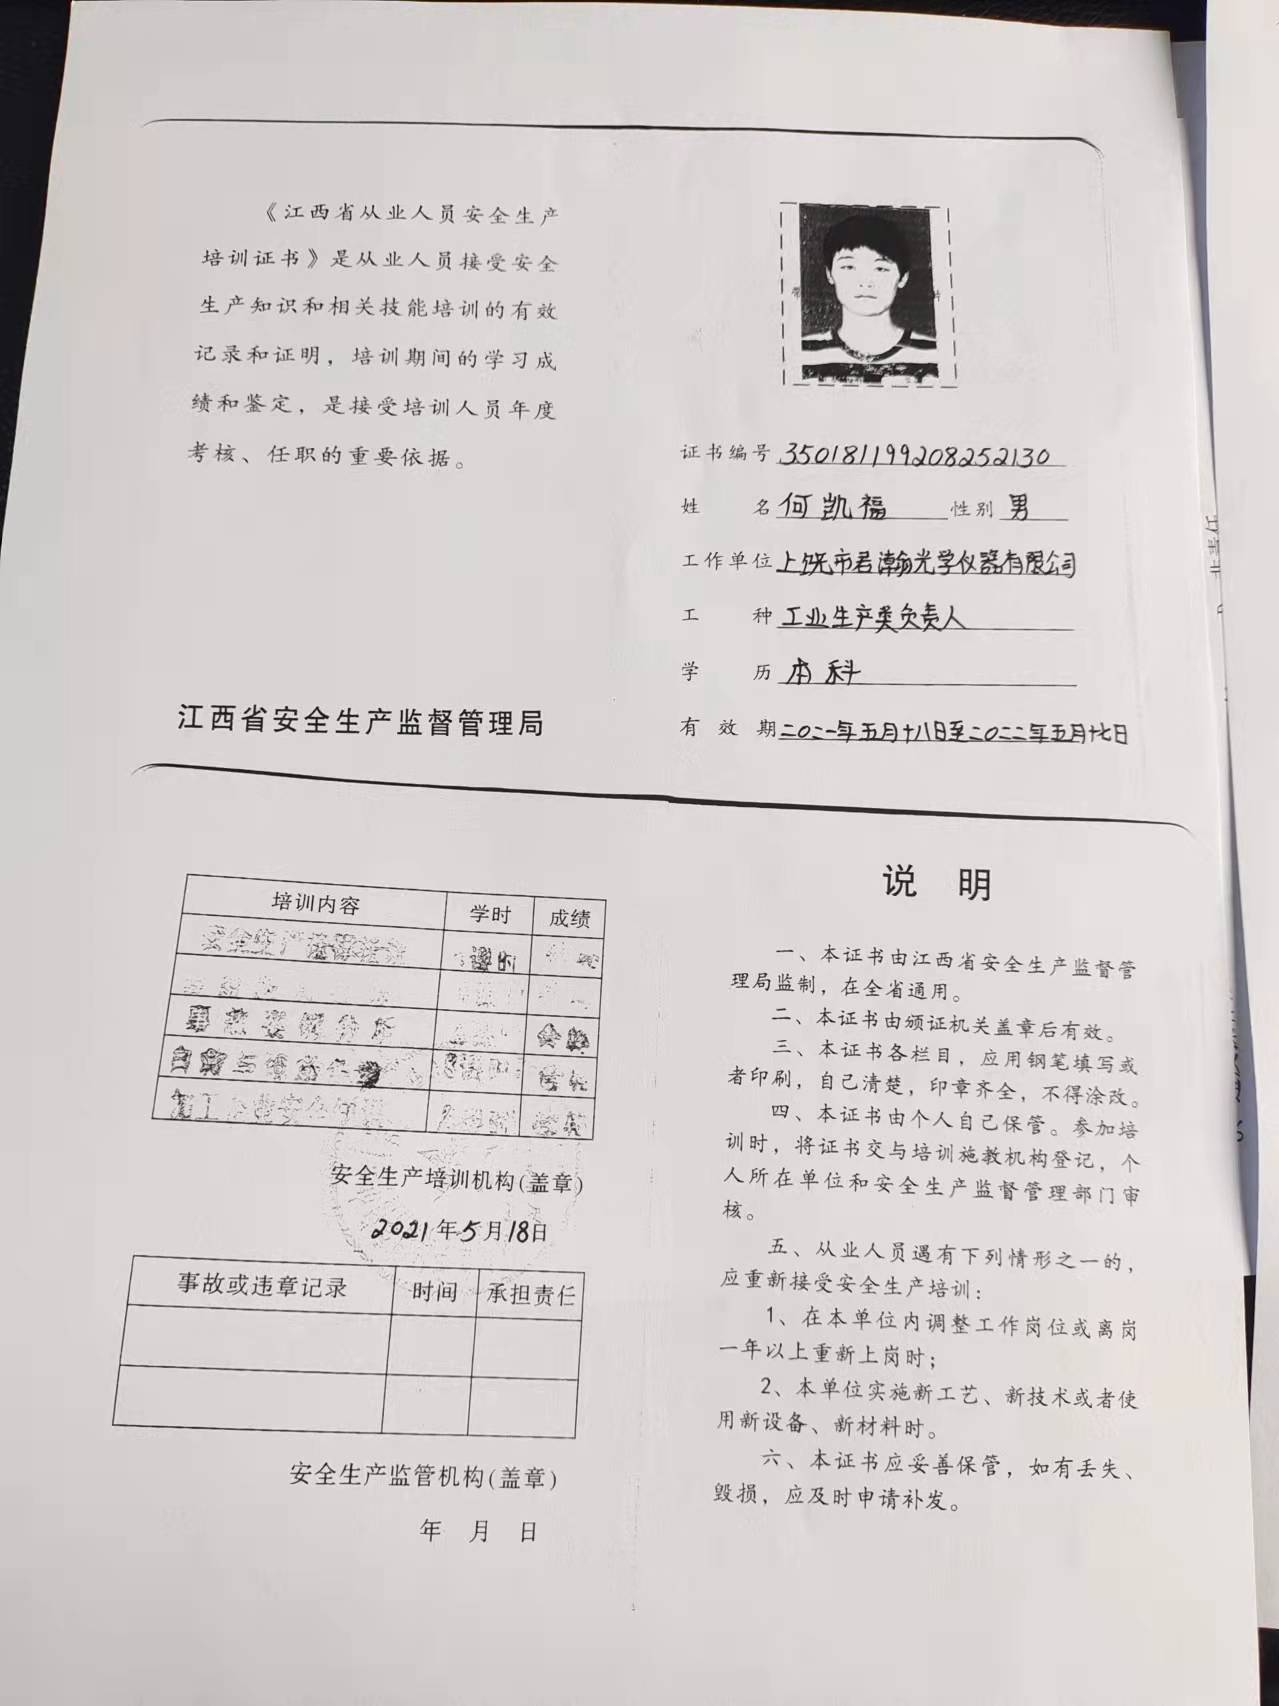 《江西省从业人员安全生产
培训证书》是从业人员接受安全
生产知识和相关技能培训的有效
记录和证明，培训期间的学习成
绩和鉴定，是接受培训人员年度
考核、任职的重要依据。
江西省安全生产监督管理局
证书编号 350181199208252130
姓 名 何凯福 性别 男
工作单位 上饶市君瀚光学仪器有限公司
工 种 工业生产类负责人
学 历 本科
有 效 期 二〇二一年五月十八日至二〇二二年五月十七日
培训内容 学时 成绩
事故案例分析 合格
安全生产培训机构(盖章)
2021年5月18日
事故或违章记录 时间 承担责任
安全生产监管机构(盖章)
年 月 日
说 明
一、本证书由江西省安全生产监督管
理局监制，在全省通用。
二、本证书由颁证机关盖章后有效。
三、本证书各栏目，应用钢笔填写或
者印刷，自己清楚，印章齐全，不得涂改。
四、本证书由个人自己保管。参加培
训时，将证书交与培训施教机构登记，个
人所在单位和安全生产监督管理部门审
核。
五、从业人员遇有下列情形之一的，
应重新接受安全生产培训：
1、在本单位内调整工作岗位或离岗
一年以上重新上岗时；
2、本单位实施新工艺、新技术或者使
用新设备、新材料时。
六、本证书应妥善保管，如有丢失、
毁损，应及时申请补发。